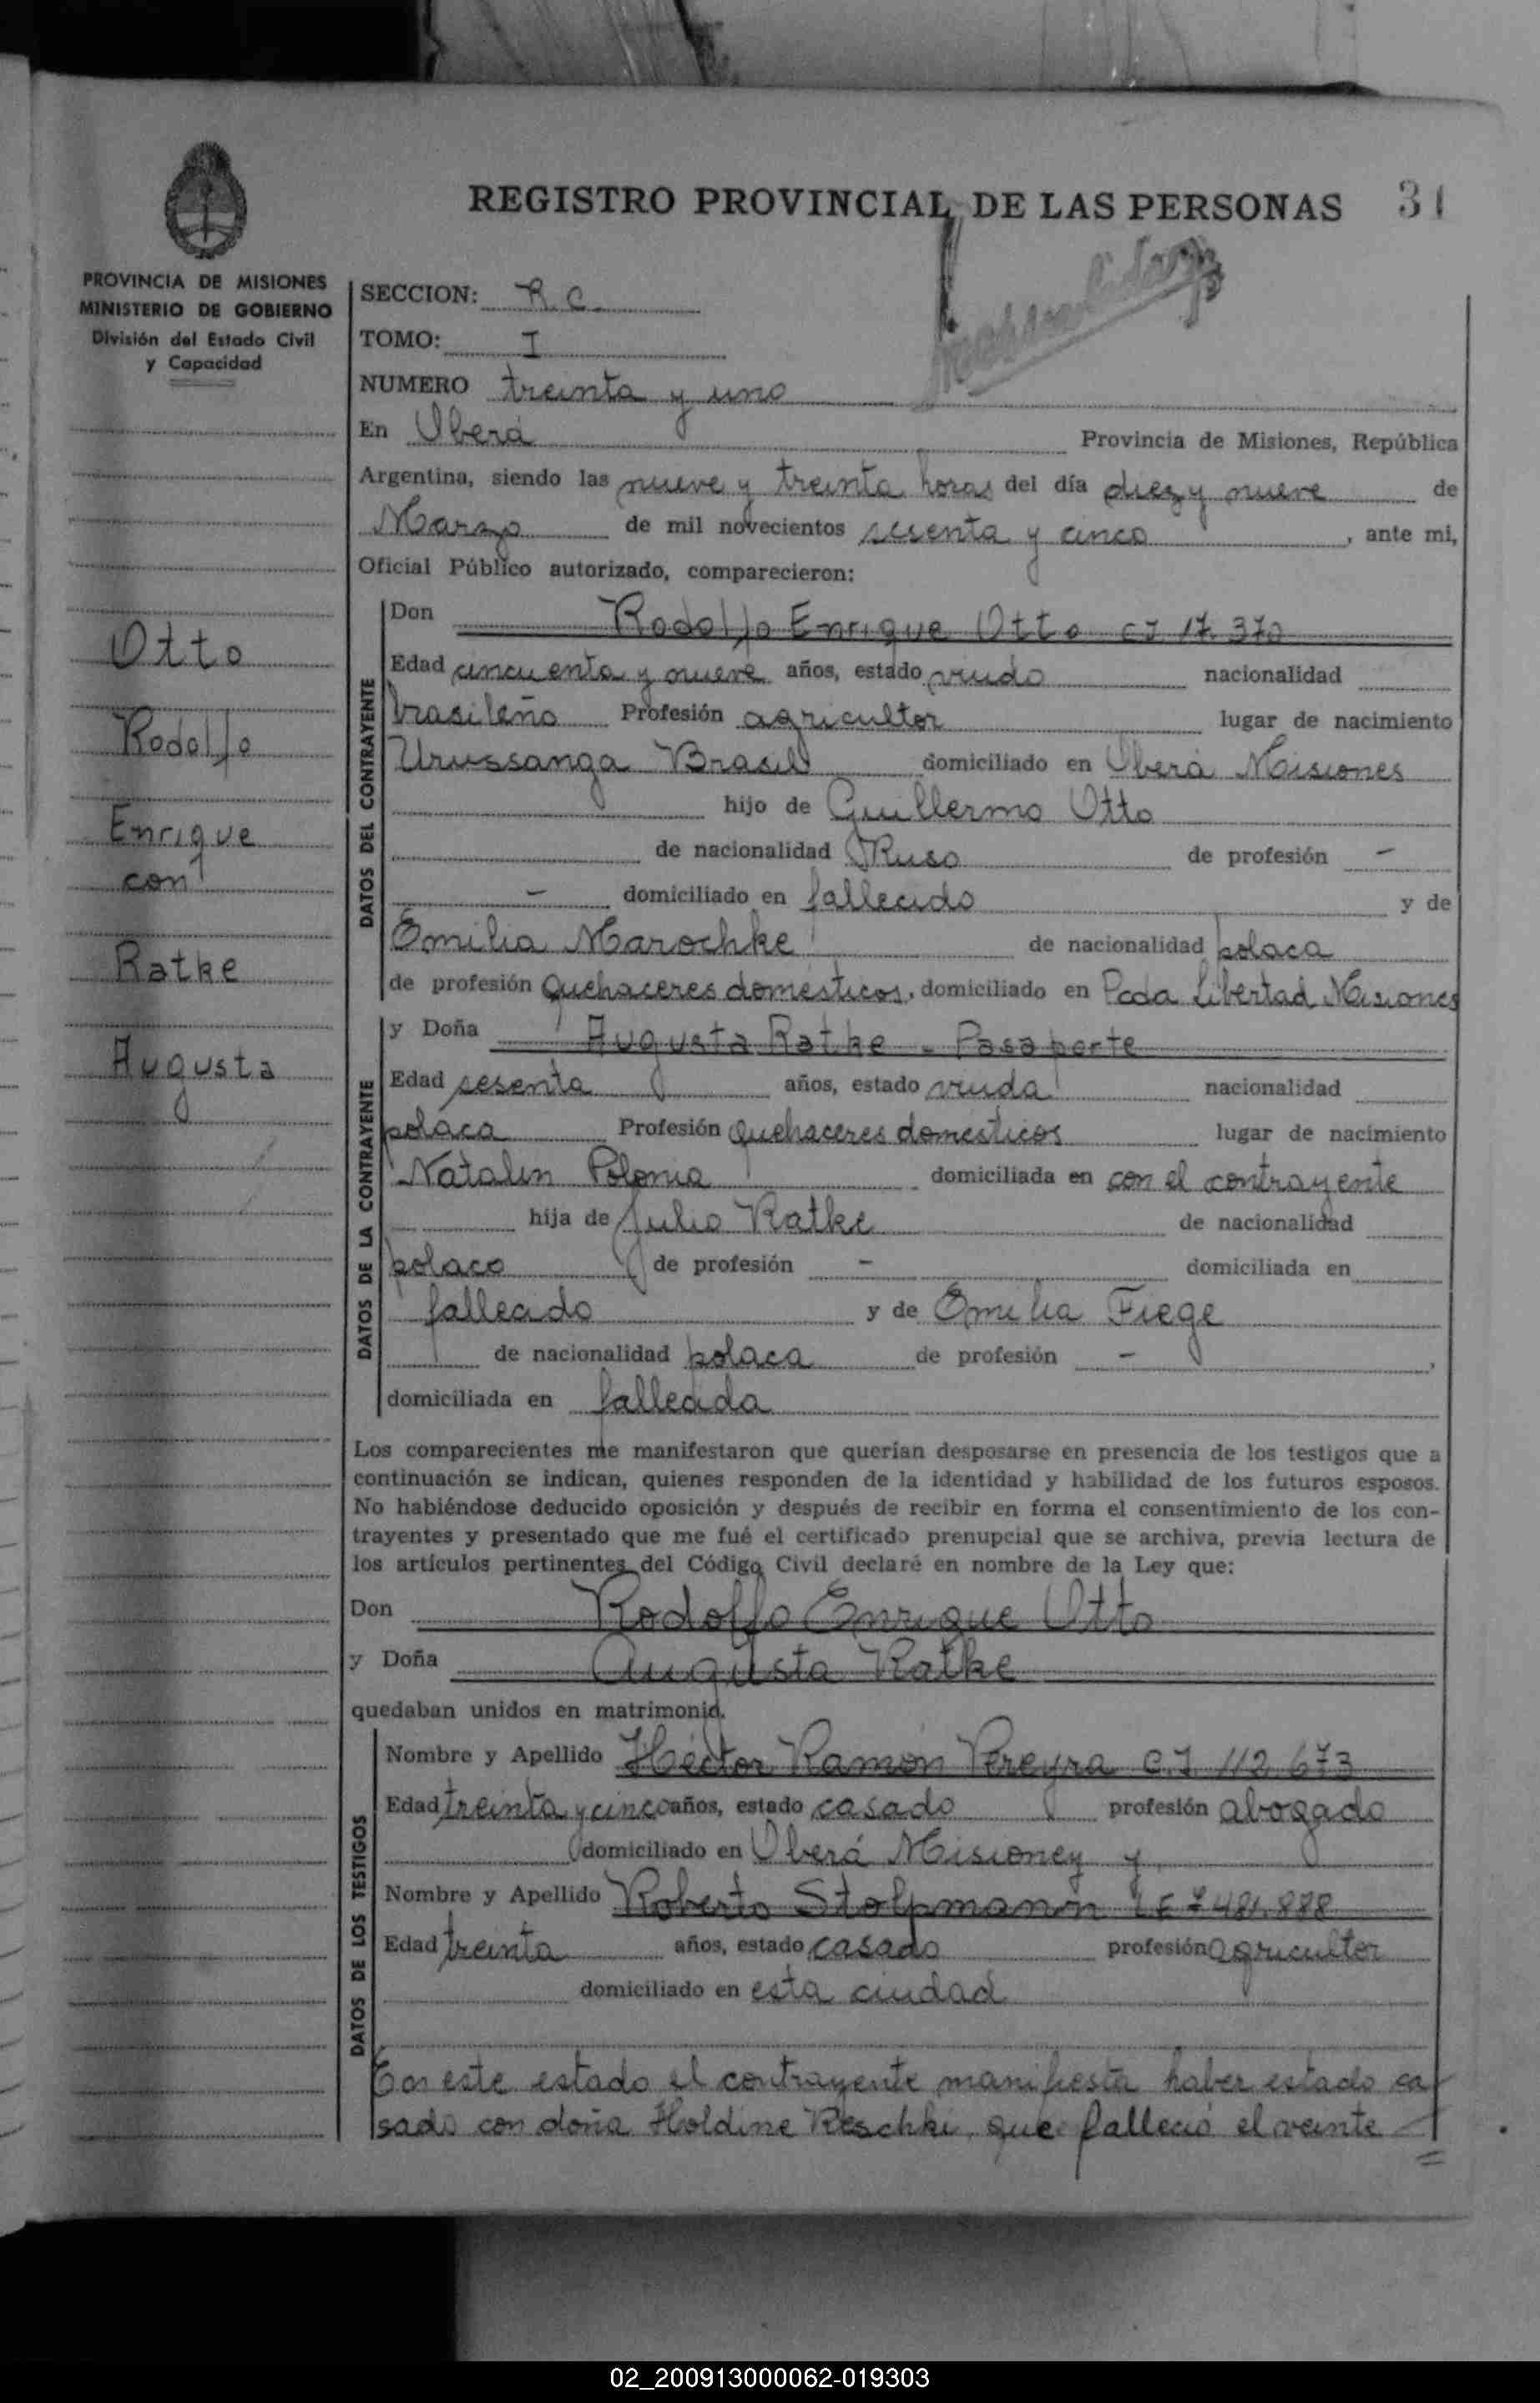 REGISTRO PROVINCIAL DE LAS PERSONAS 31
PROVINCIA DE MISIONES
MINISTERIO DE GOBIERNO
División del Estado Civil
y Capacidad
SECCION: R.C.
TOMO: I
NUMERO treinta y uno
En Oberá Provincia de Misiones, República
Argentina, siendo las nueve y treinta horas del día diez y nueve de
Marzo de mil novecientos sesenta y cinco, ante mi,
Oficial Público autorizado, comparecieron:
Otto
Rodolfo
Enrique
con
Ratke
Augusta
DATOS DEL CONTRAYENTE
Don Rodolfo Enrique Otto CI 17.370
Edad cincuenta y nueve años, estado viudo nacionalidad
brasileño Profesión agricultor lugar de nacimiento
Urussanga Brasil domiciliado en Oberá Misiones
hijo de Guillermo Otto
de nacionalidad Ruso de profesión -
- domiciliado en fallecido y de
Emilia Marochke de nacionalidad polaca
de profesión Quehaceres domésticos, domiciliado en Pcda Libertad Misiones
DATOS DE LA CONTRAYENTE
y Doña Augusta Ratke - Pasaporte
Edad sesenta años, estado viuda nacionalidad
polaca Profesión Quehaceres domesticos lugar de nacimiento
Natalin Polonia domiciliada en con el contrayente
hija de Julio Ratke de nacionalidad
polaco de profesión - domiciliada en
fallecido y de Emilia Fiege
de nacionalidad polaca de profesión -,
domiciliada en fallecida
Los comparecientes me manifestaron que querían desposarse en presencia de los testigos que a
continuación se indican, quienes responden de la identidad y habilidad de los futuros esposos.
No habiéndose deducido oposición y después de recibir en forma el consentimiento de los con-
trayentes y presentado que me fué el certificado prenupcial que se archiva, previa lectura de
los artículos pertinentes del Código Civil declaré en nombre de la Ley que:
Don Rodolfo Enrique Otto
y Doña Augusta Ratke
quedaban unidos en matrimonio.
DATOS DE LOS TESTIGOS
Nombre y Apellido Héctor Ramón Pereyra C.I 112.673
Edad treinta y cinco años, estado casado profesión abogado
domiciliado en Oberá Misiones y
Nombre y Apellido Roberto Stolpmann LE 7481.888
Edad treinta años, estado casado profesión agricultor
domiciliado en esta ciudad
En este estado el contrayente manifiesta haber estado ca
sado con doña Holdine Reschke que falleció el veinte
02_200913000062-019303